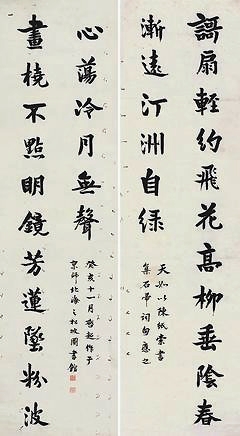 謌扇輕約飛花高柳垂陰春
漸遠汀洲自绿
天如以陳紙索書
集石帚詞句應之
畫橈不點明鏡芳蓮墜粉波
心蕩冷月無聲
癸亥十一月啟超作于
京師北海之松坡圖書館